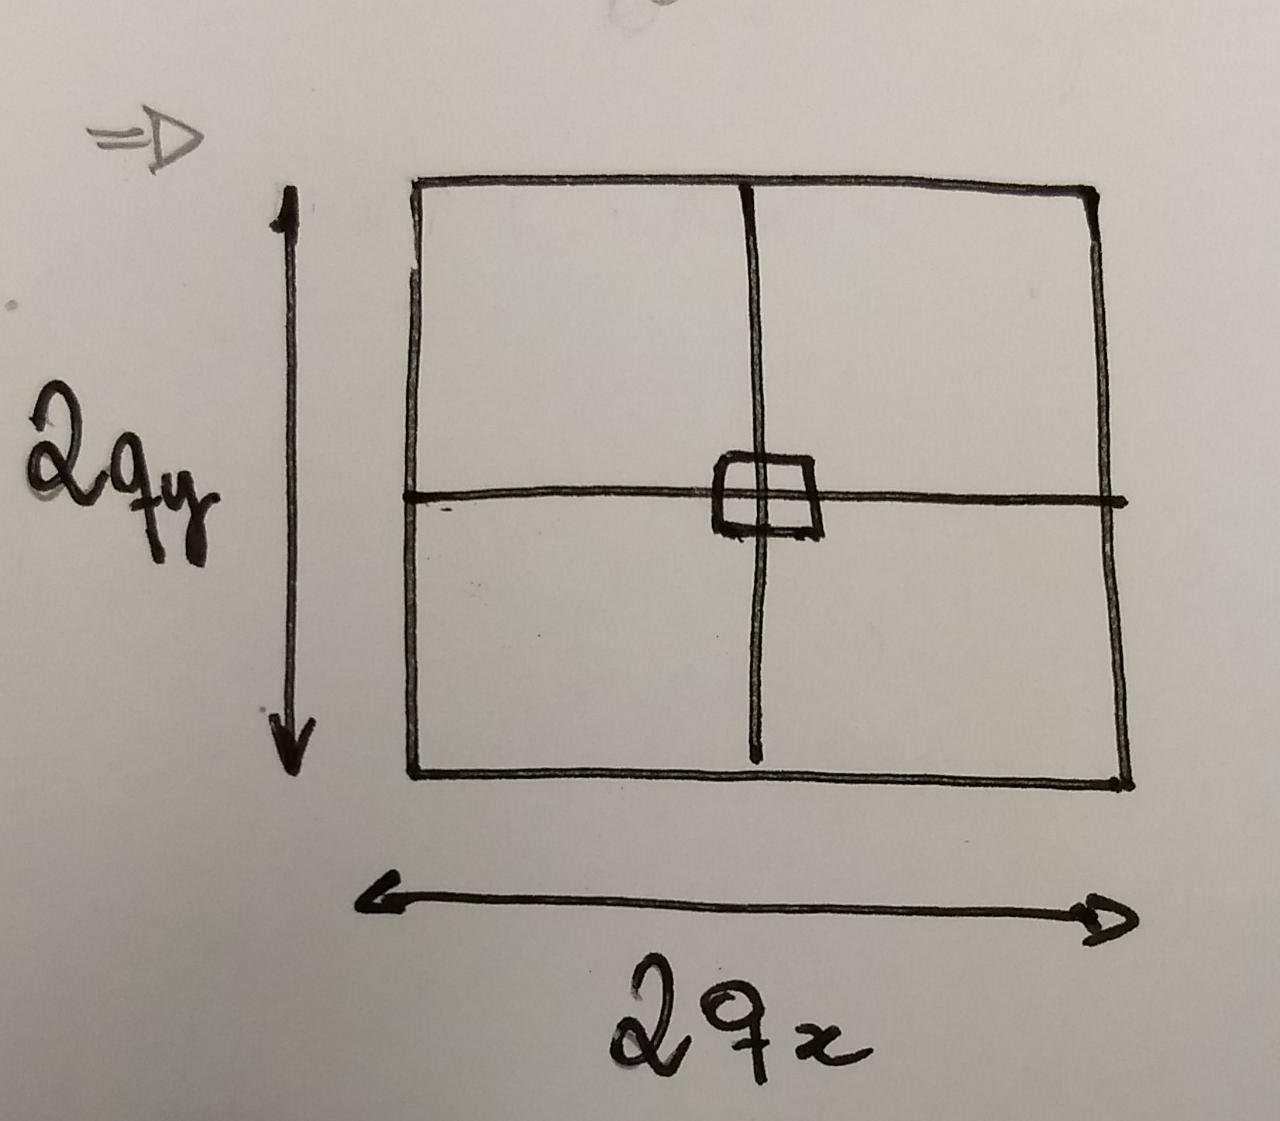 ⇒
2qy
2qx